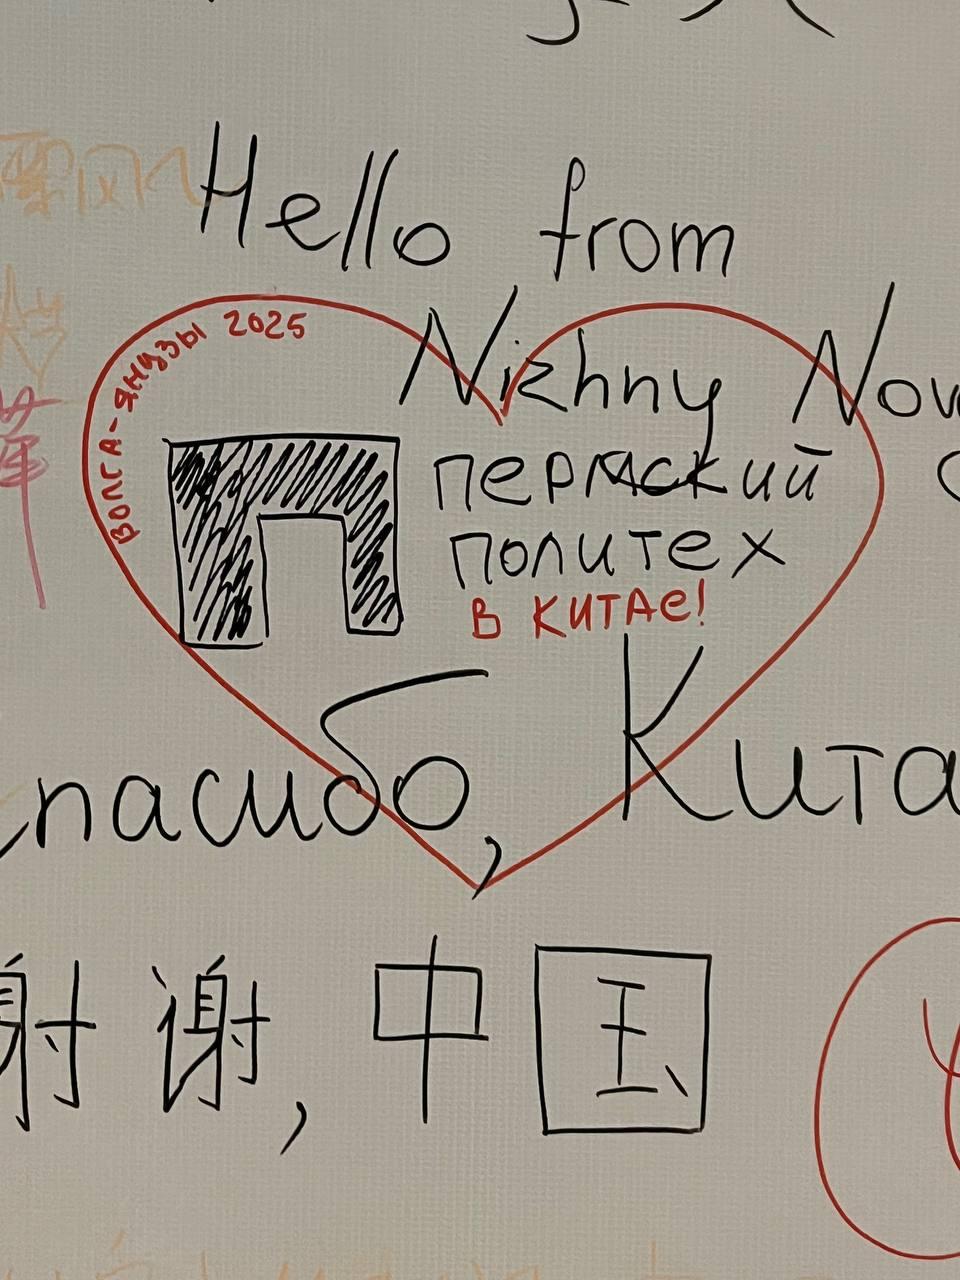 Hello from
Nizhny
ВОЛГА-ЯНЦЗЫ 2025
П
пермский
политех
В КИТАЕ!
Спасибо, Кита
谢谢, 中国